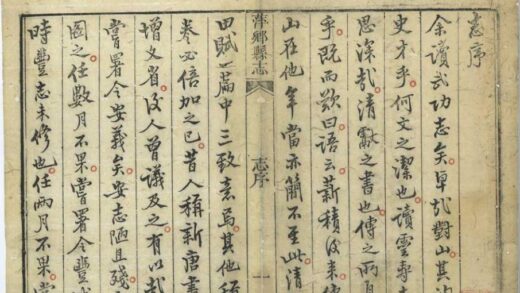 志序
余讀武功志矣卓哉對山其
史才乎何文之潔也讀雲
思深哉清獻之書也傳之兩月
乎既而歎曰語云薪積後来
山在他年當亦簡不至此清
萍鄉縣志
志序
一
田賦一篇中三致意焉其他
卷必倍加之已昔人稱新唐書
增文省後人曾議及之有以哉
嘗署令安義矣安志陋且殘
圖之任數月不果嘗署令豐
時豐志未修也任兩月不果